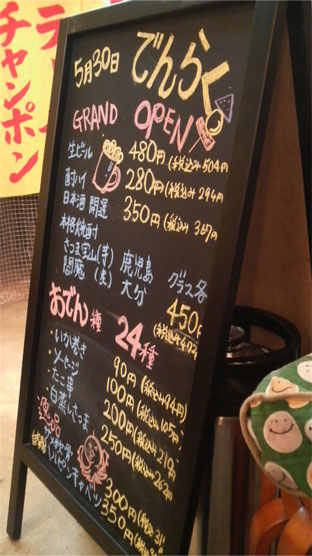 チャンポン
5月30日 でんらく
GRAND OPEN
生ビール 480円(税込み504円
酎ハイ 280円(税込み 294円
日本酒 開運 350円(税込み 367円
本格焼酎 グラス各
さつま宝山(芋) 鹿児島
閻魔 (麦) 大分 450円
おでん種 24種
・いか巻き 90円(税込み94円)
・ソーセージ 100円(税込み105円)
・たこ串 200円(税込み210円
・白蒸しさつま 250円(税込み262円
300円(税込み
キャベツ 350円(税込み